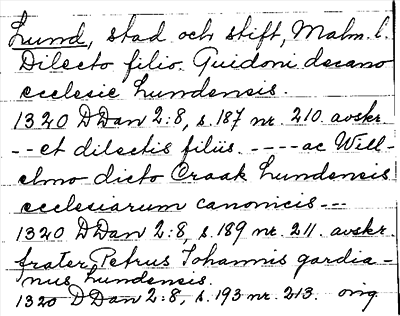 Lund, stad och stift, Malm. l.
Dilecto filio. Guidoni decano
ecclesie Lundensis.
1320 DDan 2:8, s. 187 nr. 210 avskr.
-- et dilectis filiis. ---- ac Will-
elmo dicto Craak Lundensis
ecclesiarum canonicis ---
1320 DDan 2:8, s. 189 nr. 211. avskr.
frater Petrus Johannis gardia-
nus Lundensis.
1320 DDan 2:8, s. 193 nr. 213. orig